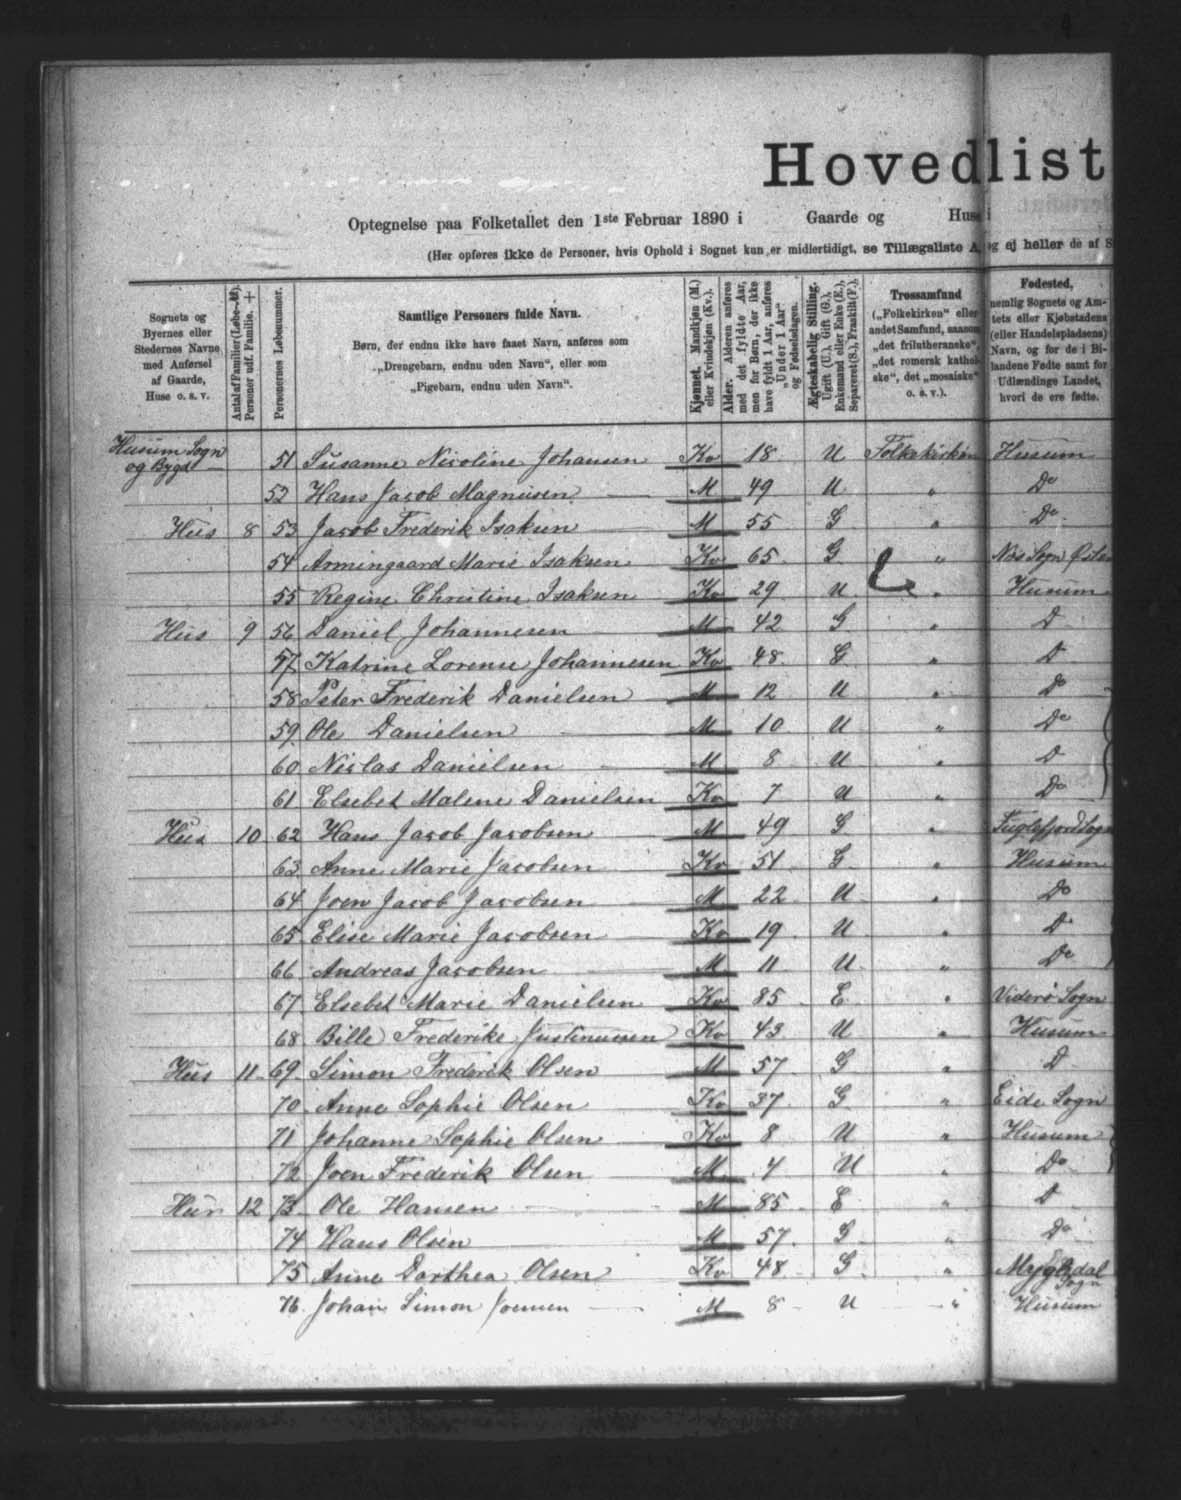 Hovedlist
Optegnelse paa Folketallet den 1ste Februar 1890 i Gaarde og Huse i
(Her opføres ikke de Personer, hvis Ophold i Sognet kun er midlertidigt, se Tillægsliste A, og ej heller de af S
Sognets og Byernes eller Stedernes Navne med Anførsel af Gaarde, Huse o. s. v.
Antal af Familier (Løbe-№). Personer udf. Familie. +
Personernes Løbenummer.
Samtlige Personers fulde Navn.
Børn, der endnu ikke have faaet Navn, anføres som
„Drengebarn, endnu uden Navn“, eller som
„Pigebarn, endnu uden Navn“.
Kjønnet. Mandkjøn (M.) eller Kvindekjøn (Kv.).
Alder. Alderen anføres med det fyldte Aar, men for Børn, der ikke have fyldt 1 Aar, anføres „Under 1 Aar“ og Fødselsdagen.
Ægteskabelig Stilling. Ugift (U.), Gift (G.), Enkemand eller Enke (E.), Separeret (S.), Fraskilt (F.).
Trossamfund
(„Folkekirken“ eller
andet Samfund, saasom
„det frilutheranske“,
„det romersk kathol-
ske“, det „mosaiske“
o. s. v.).
Fødested,
nemlig Sognets og Am-
tets eller Kjøbstadens
(eller Handelspladsens)
Navn, og for de i Bi-
landene Fødte samt for
Udlændinge Landet,
hvori de ere fødte.
Husum Sogn og Bygd 51 Susanne Nicoline Johansen Kv 18 U Folkekirken Husum
52 Hans Jacob Magnusen M 49 U " Do
Hus 8 53 Jacob Frederik Isaksen M 55 G " Do
54 Armingaard Marie Isaksen Kv 65 G " Næs Sogn Øster
55 Regine Christine Isaksen Kv 29 U " Husum
Hus 9 56 Daniel Johannesen M 42 G " D
57 Katrine Lorense Johannesen Kv 48 G " D
58 Peter Frederik Danielsen M 12 U " Do
59 Ole Danielsen M 10 U " Do
60 Niclas Danielsen M 8 U " D
61 Elsebet Malene Danielsen Kv 7 U " Do
Hus 10 62 Hans Jacob Jacobsen M 49 G " Fuglefjord Sogn
63 Anne Marie Jacobsen Kv 51 G " Husum
64 Joen Jacob Jacobsen M 22 U " Do
65 Elise Marie Jacobsen Kv 19 U " D
66 Andreas Jacobsen M 11 U " Do
67 Elsebet Marie Danielsen Kv 85 E " Viderø Sogn
68 Bille Frederike Justinussen Kv 43 U " Husum
Hus 11 69 Simon Frederik Olsen M 57 G " D
70 Anne Sophie Olsen Kv 37 G " Eide Sogn
71 Johanne Sophie Olsen Kv 8 U " Husum
72 Joen Frederik Olsen M 4 U " Do
Hus 12 73 Ole Hansen M 85 E " D
74 Hans Olsen M 57 G " Do
75 Anne Dorthea Olsen Kv 48 G " Mygledal Sogn
76 Johan Simon Joensen M 8 U " Husum